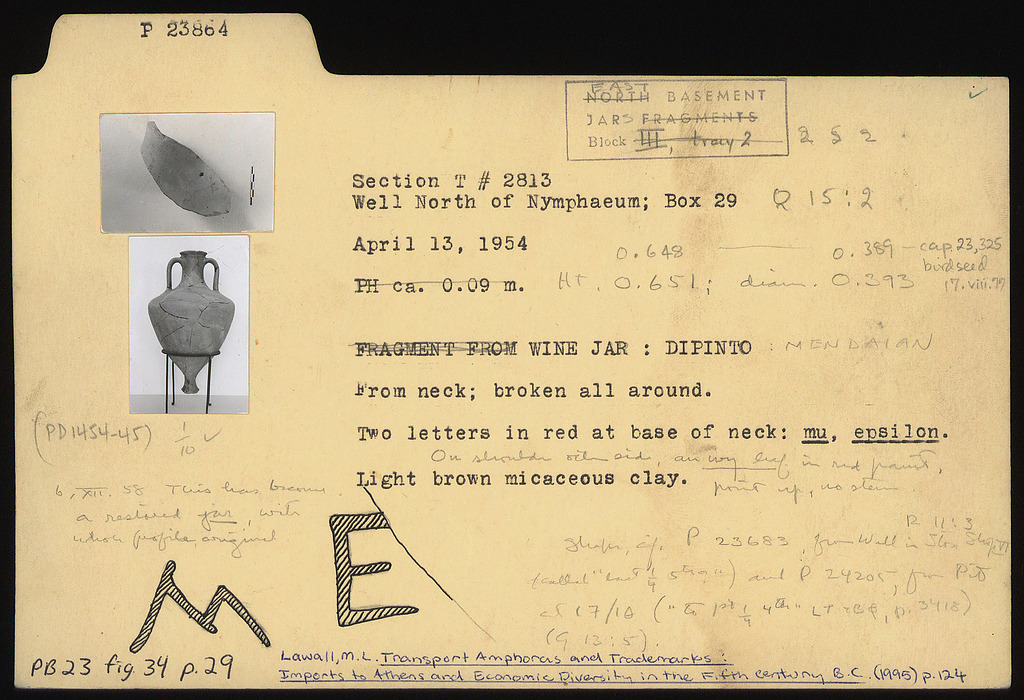 P 23864
EAST
NORTH BASEMENT
JARS FRAGMENTS
Block III, tray 2
252
Section T # 2813
Well North of Nymphaeum; Box 29 Q 15:2
April 13, 1954
0.648 0.389 — cap. 23,325
birdseed
17.viii.77
PH ca. 0.09 m. Ht. 0.651; diam. 0.393
FRAGMENT FROM WINE JAR : DIPINTO : MENDAIAN
From neck; broken all around.
Two letters in red at base of neck: mu, epsilon.
On shoulder other side, an ivy leaf in red paint,
point up, no stem.
Light brown micaceous clay.
(PD1454-45) 1/10
6.XII.58 This has become
a restored jar, with
whole profile, original
R 11:3
Shape, cf. P 23683, from Well in Stoa Shop
(called "last 1/4 5th") and P 24205, from Pit
at 17/ ("to 1st 1/4 4th" p. 3418)
(Q 13:5).
ME
PB23 fig. 34 p. 29
Lawall, M.L. Transport Amphoras and Trademarks:
Imports to Athens and Economic Diversity in the Fifth century B.C. (1995) p. 124